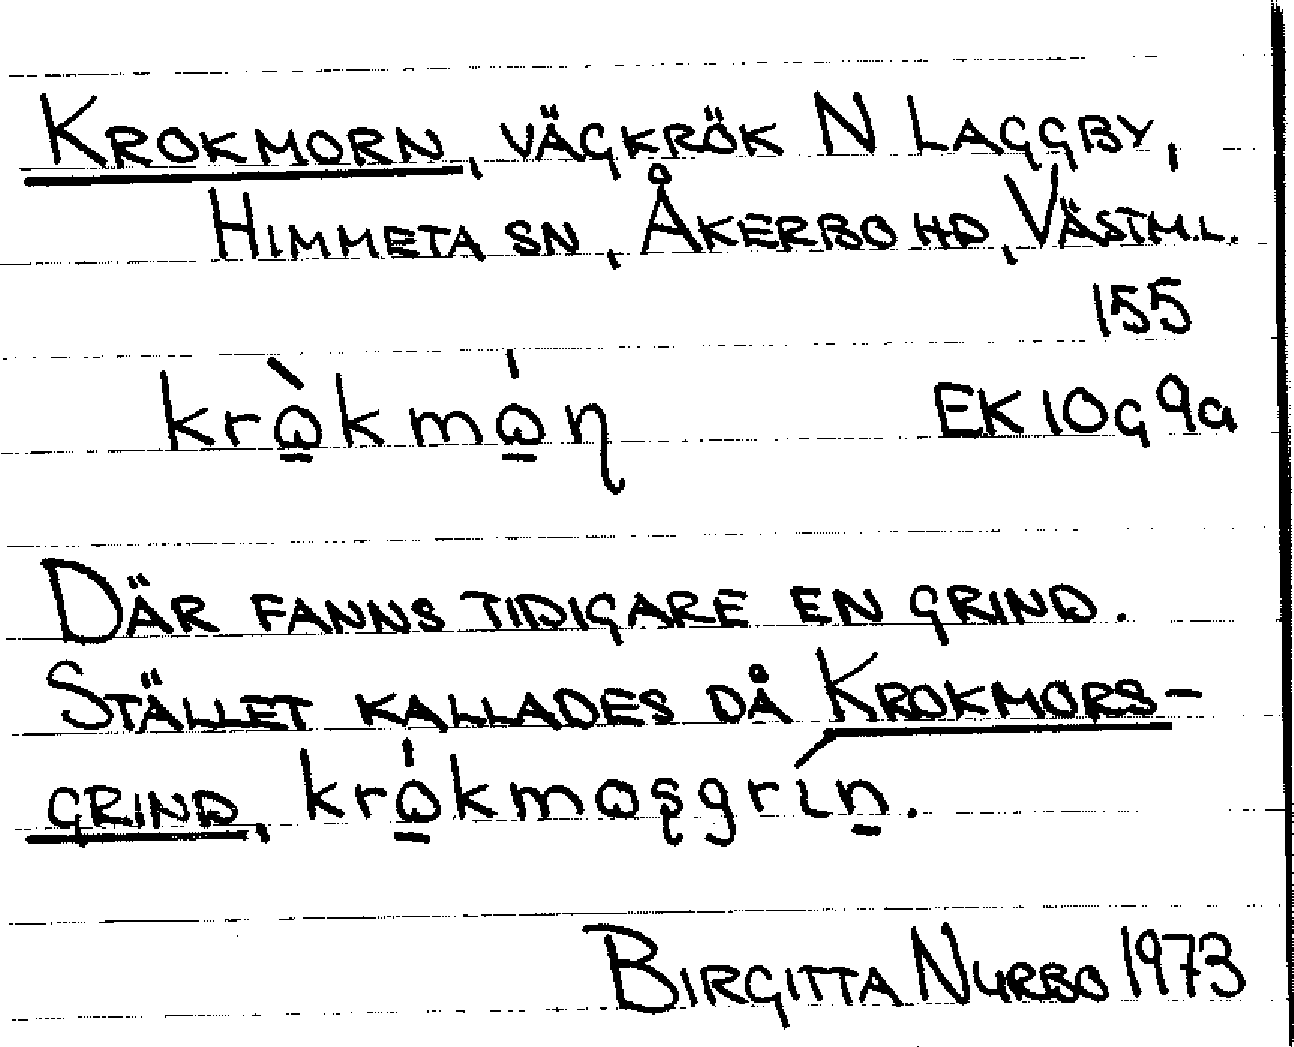 Krokmorn, vägkrök N Laggby,
Himmeta sn, Åkerbo hd, Västml.
155
krὼ̱kmώ̱ɳ EK 10g 9a
Där fanns tidigare en grind.
Stället kallades då Krokmors-
grind, krώ̱kmωʂgrín̠.
Birgitta Nyrbo 1973